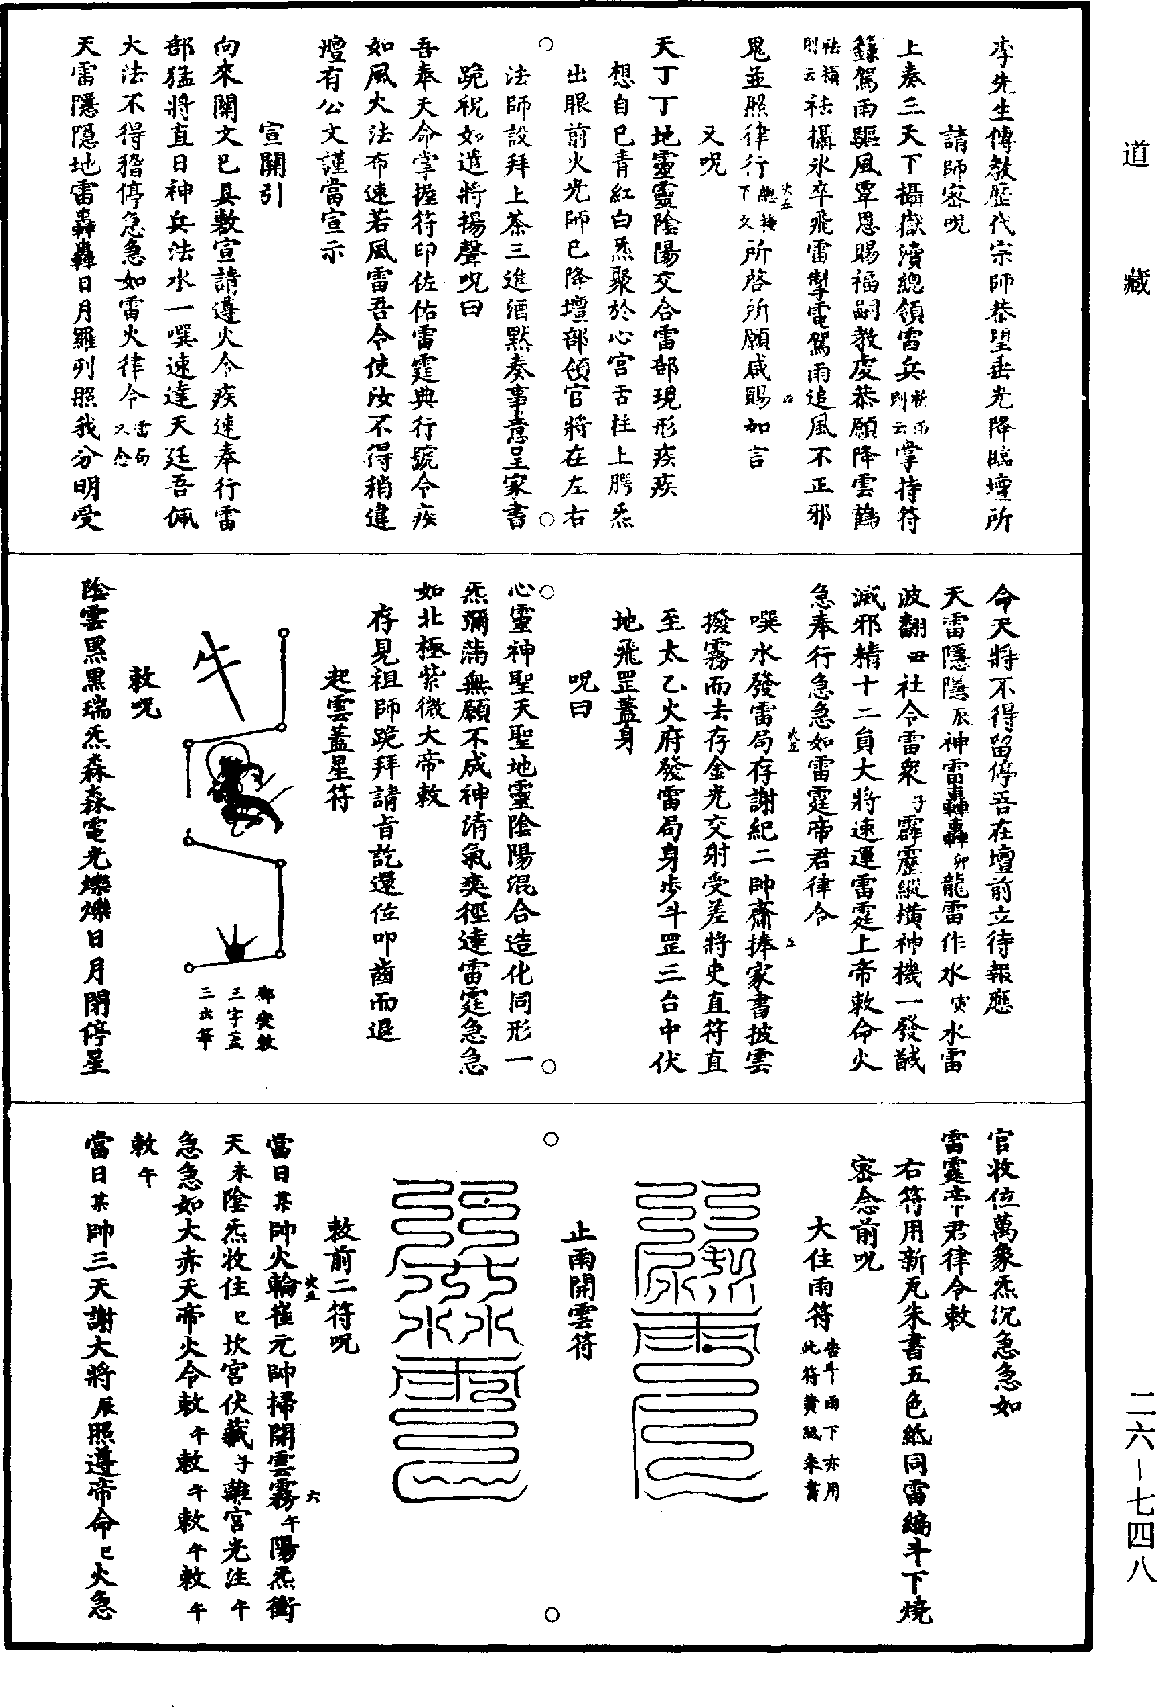 道藏
李先生傳教歷代宗師恭望垂光降臨壇所
請師密呪
上奏三天下攝嶽瀆總領雷兵祈雨則云掌持符
籙駕雨驅風覃恩賜福嗣教虔恭願降雲鶴
祛攝則云祛攝水卒飛雷掣電駕雨追風不正邪
鬼並照律行應接下文所啓所願咸賜如言
又呪
天丁丁地靈靈陰陽交合雷部現形疾疾
想自己青紅白炁聚於心宮舌柱上腭炁
出眼前火光師已降壇部領官將在左右
法師設拜上茶三進酒默奏事意呈家書
跪祝如道將揚聲呪曰
吾奉天命掌握符印佐佑雷霆典行號令疾
如風火法布速若風雷吾今使汝不得稍違
壇有公文謹當宣示
宣關引
向來關文已具敷宣請遵火令疾速奉行雷
部猛將直日神兵法水一噀速達天廷吾佩
大法不得稽停急急如雷火律令雷局又念
天雷隱隱地雷轟轟日月羅列照我分明受
令天將不得留停吾在壇前立待報應
天雷隱隱辰神雷轟轟卯龍雷作水寅水雷
波翻丑社令雷衆子霹靂縱橫神機一發馘
滅邪精十二員大將速運雷霆上帝敕命火
急奉行急急如雷霆帝君律令
噀水發雷局存謝紀二帥齎捧家書披雲
撥霧而去存金光交射受差將吏直符直
至太乙火府發雷局身步斗罡三台中伏
地飛罡蓋身
呪曰
心靈神聖天聖地靈陰陽混合造化同形一
炁彌滿無願不成神清氣爽徑達雷霆急急
如北極紫微大帝敕
存見祖師跪拜請旨訖還位叩齒而退
起雲蓋星符
敕呪
陰雲黑黑瑞炁森森電光爍爍日月閉停星
官收位萬象炁沉急急如
雷霆帝君律令敕
右符用新瓦朱書五色紙同雷編斗下燒
密念前呪
大住雨符
止雨開雲符
敕前二符呪
當日某帥火輪崔元帥掃開雲霧午陽炁衝
天未陰炁收住巳坎宮伏藏子離宮光注午
急急如大赤天帝火令敕午敕午敕午敕午
敕午
當日某帥三天謝大將辰照遵帝命巳火急
二六－七四八